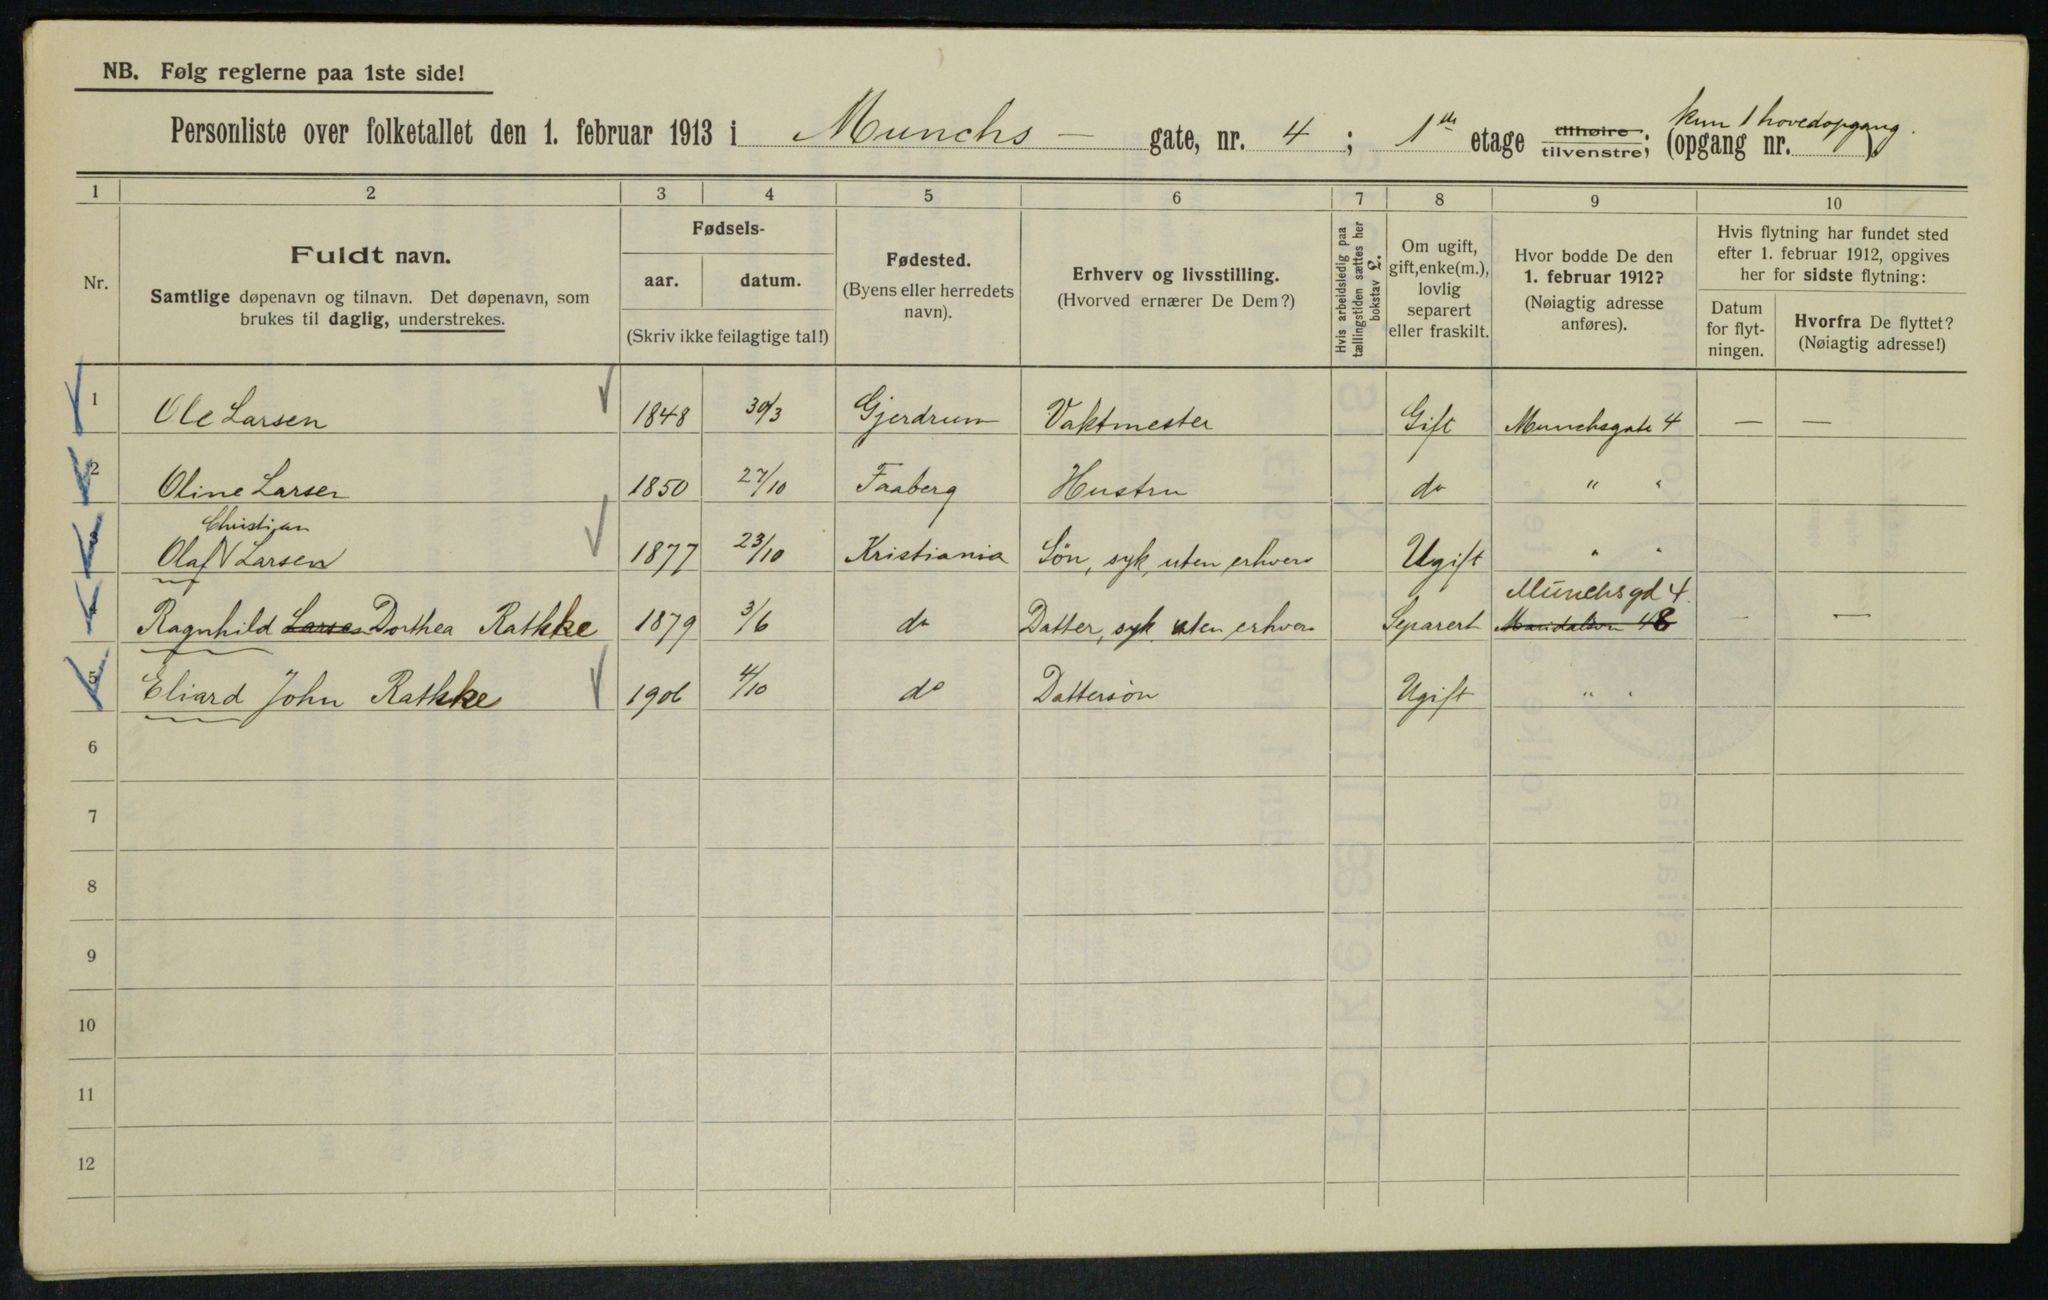 NB. Følg reglerne paa 1ste side!
Personliste over folketallet den 1. februar 1913 i Munchs — gate, nr. 4 ; 1ste etage tilhøire tilvenstre; (opgang nr. kun 1 hovedopgang.)
1 2 3 4 5 6 7 8 9 10
Nr.
Fuldt navn.
Samtlige døpenavn og tilnavn. Det døpenavn, som
brukes til daglig, understrekes.
Fødsels-
aar. datum.
(Skriv ikke feilagtige tal!)
Fødested.
(Byens eller herredets
navn).
Erhverv og livsstilling.
(Hvorved ernærer De Dem?)
Hvis arbeidsledig paa
tællingstiden sættes her
bokstav L.
Om ugift,
gift, enke(m.),
lovlig
separert
eller fraskilt.
Hvor bodde De den
1. februar 1912?
(Nøiagtig adresse
anføres).
Hvis flytning har fundet sted
efter 1. februar 1912, opgives
her for sidste flytning:
Datum
for flyt-
ningen.
Hvorfra De flyttet?
(Nøiagtig adresse!)
1 Ole Larsen 1848 30/3 Gjerdrum Vaktmester Gift Munchsgate 4 — —
2 Oline Larsen 1850 27/10 Faaberg Hustru do " "
Christian
3 Olaf V Larsen 1877 23/10 Kristiania Sön, syk, uten erhverv Ugift " "
Munchsgd 4.
4 Ragnhild Larsen Dorthea Rathke 1879 3/6 do Datter, syk uten erhverv Separert Maridalsvn 48 — —
5 Eliard John Rathke 1906 4/10 do Dattersön Ugift " "
6
7
8
9
10
11
12